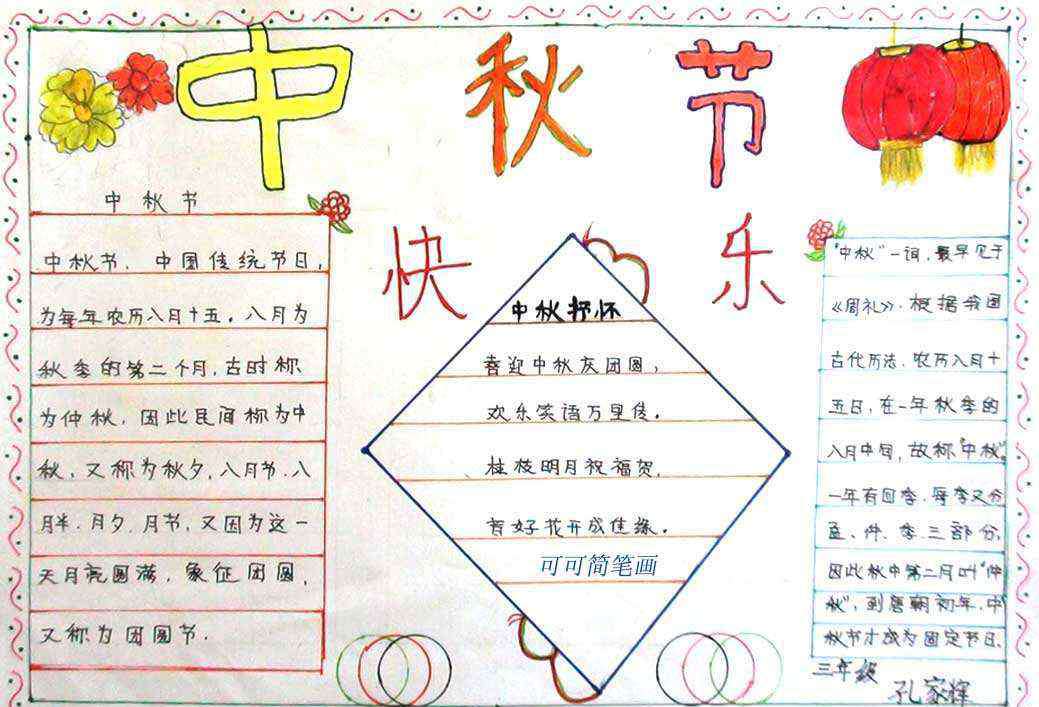 中秋节
快乐
中秋节
中秋节，中国传统节日，
为每年农历八月十五，八月为
秋季的第二个月，古时称
为仲秋，因此民间称为中
秋，又称为秋夕，八月节.八
月半.月夕.月节，又因为这一
天月亮圆满，象征团圆，
又称为团圆节.
中秋抒怀
喜迎中秋庆团圆，
欢乐笑语万里传。
桂枝明月祝福贺，
花开成佳缘。
可可简笔画
“中秋”一词，最早见于
《周礼》.根据我国
古代历法，农历八月十
五日，在一年秋季的
八月中旬，故称“中秋”。
一年有四季.每季又分
孟、仲、季三部分，
因此秋中第二月叫“仲
秋”，到唐朝初年，中
秋节才成为固定节日.
三年级
孔家辉